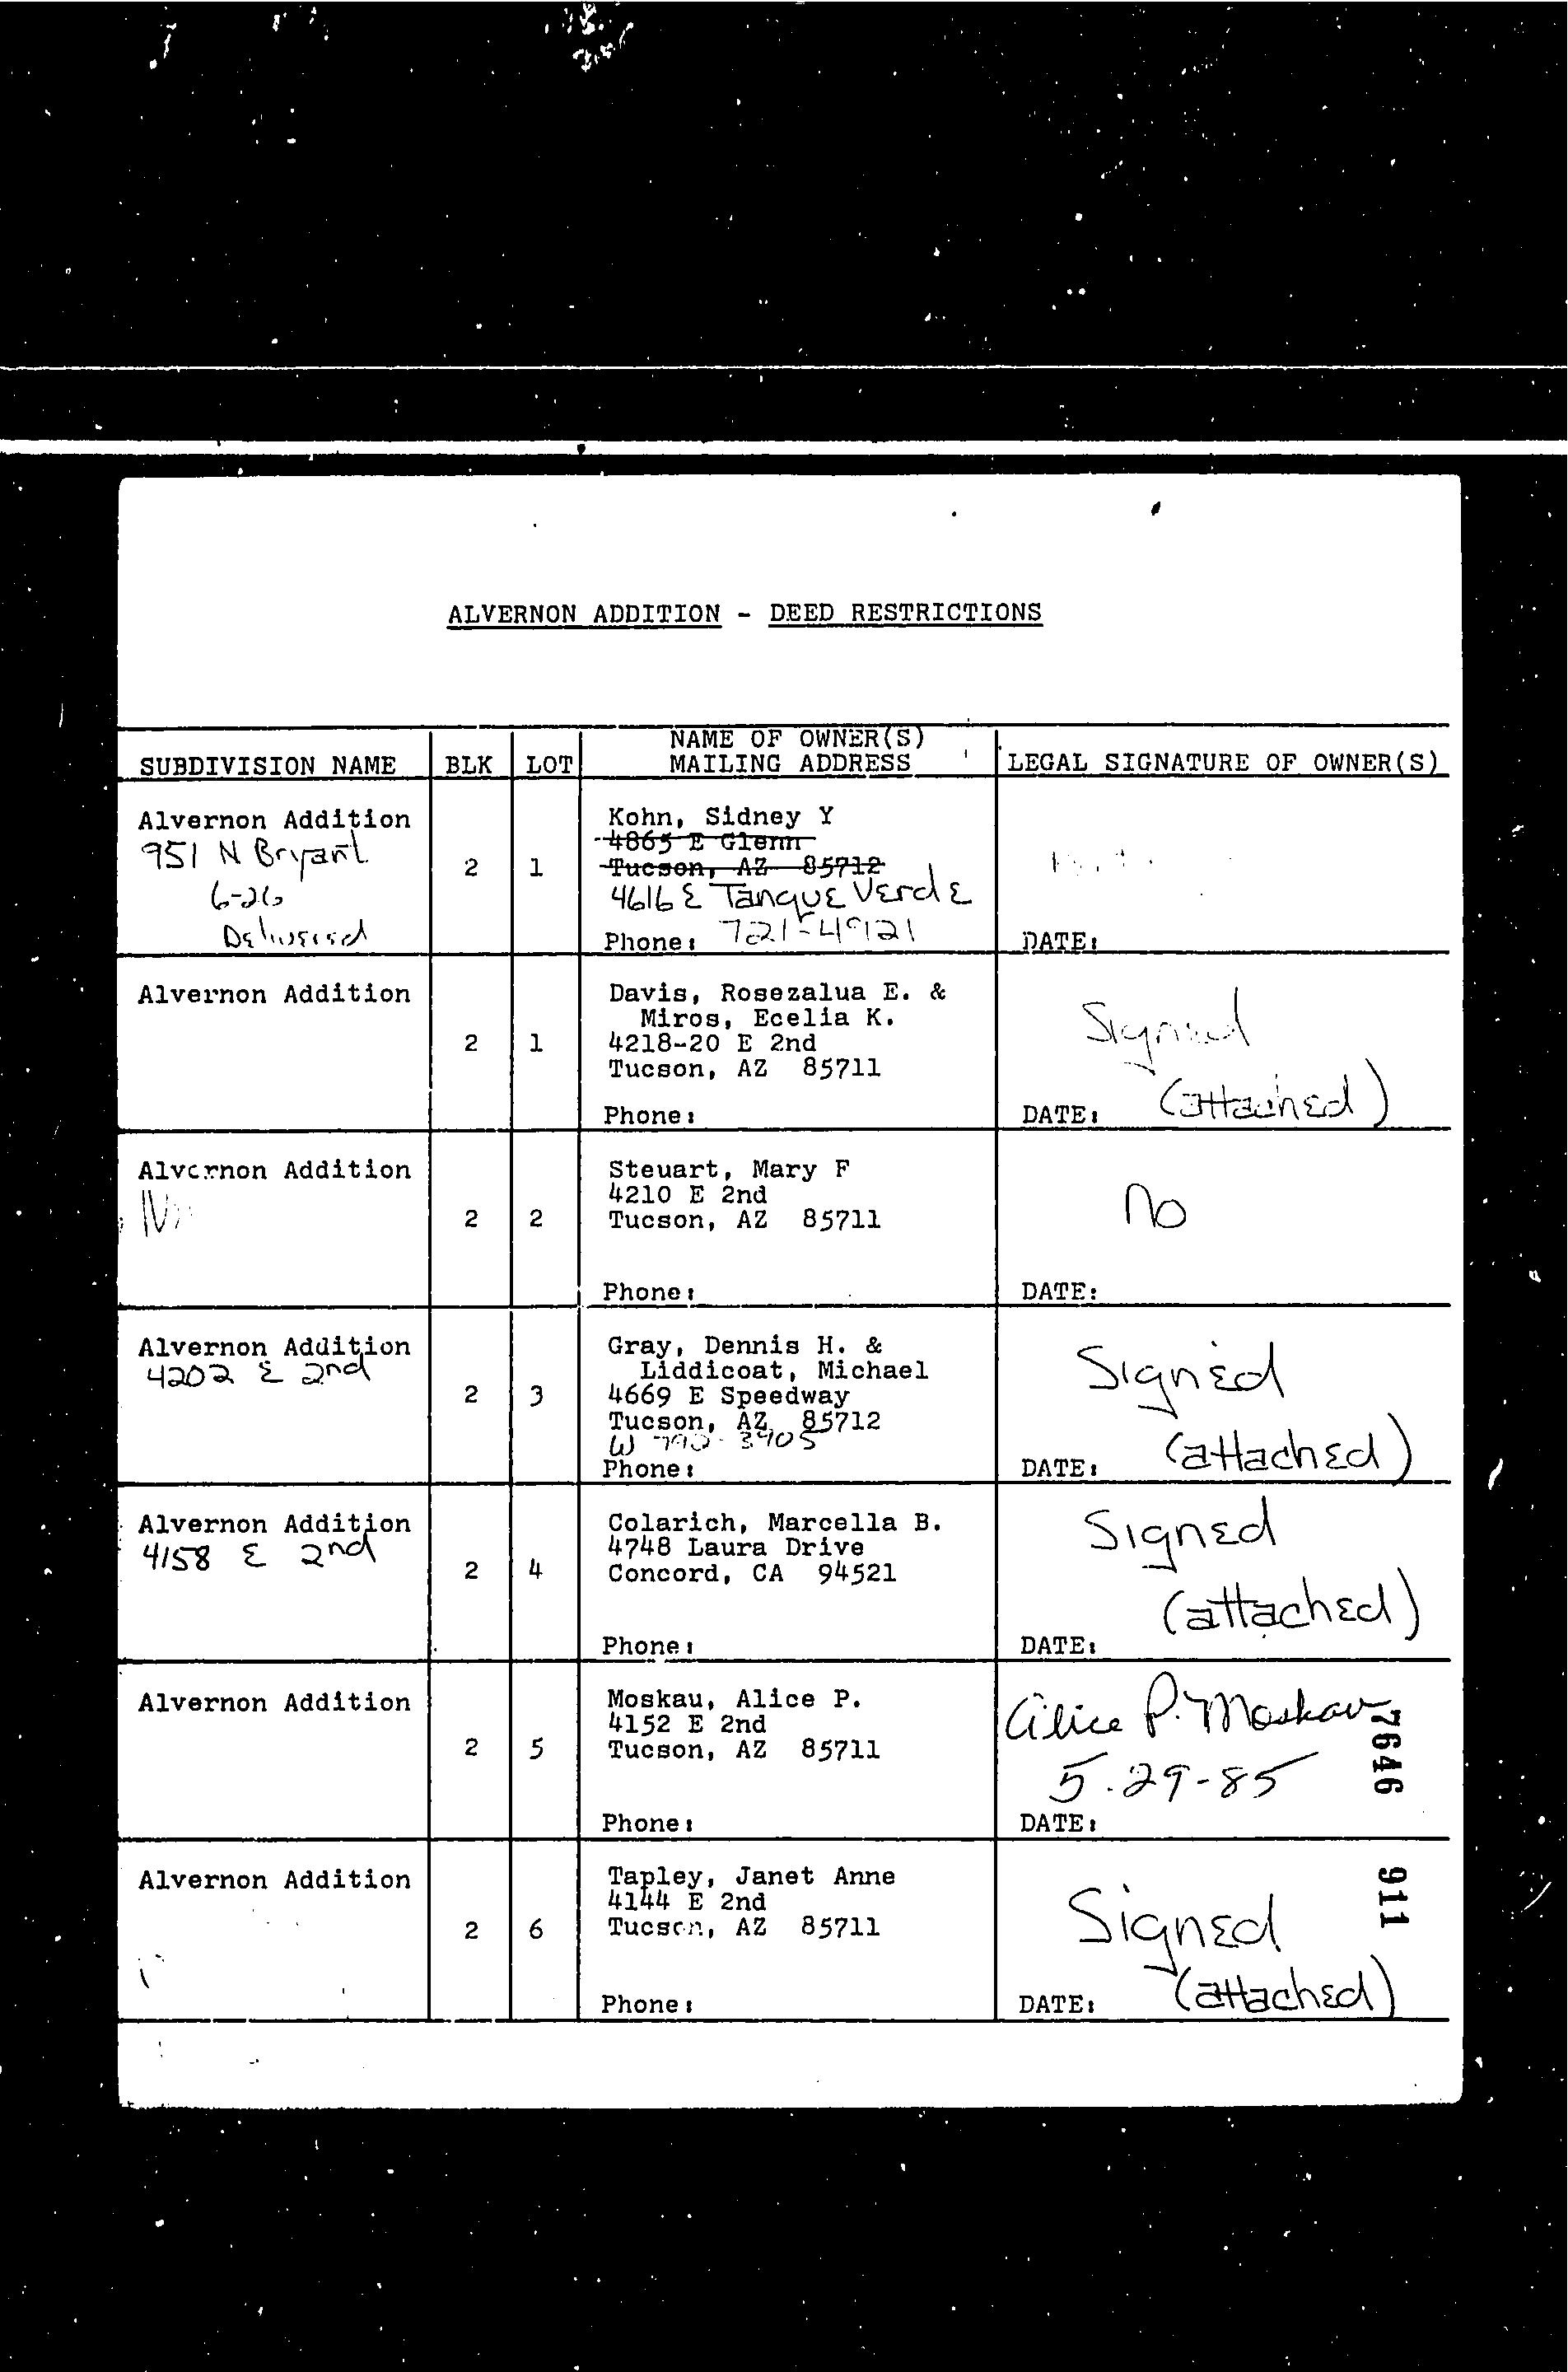 ALVERNON ADDITION - DEED RESTRICTIONS
SUBDIVISION NAME BLK LOT NAME OF OWNER(S) MAILING ADDRESS LEGAL SIGNATURE OF OWNER(S)
Alvernon Addition
951 N Bryant
6-26
Delivered
2 1
Kohn, Sidney Y
4865 E Glenn
Tucson, AZ 85712
4616 E Tanque Verde
Phone: 721-4921
DATE:
Alvernon Addition
2 1
Davis, Rosezalua E. &
Miros, Ecelia K.
4218-20 E 2nd
Tucson, AZ 85711
Phone:
Signed
(attached)
DATE:
Alvernon Addition
2 2
Steuart, Mary F
4210 E 2nd
Tucson, AZ 85711
Phone:
no
DATE:
Alvernon Addition
4202 E 2nd
2 3
Gray, Dennis H. &
Liddicoat, Michael
4669 E Speedway
Tucson, AZ 85712
W 790-3905
Phone:
Signed
(attached)
DATE:
Alvernon Addition
4158 E 2nd
2 4
Colarich, Marcella B.
4748 Laura Drive
Concord, CA 94521
Phone:
Signed
(attached)
DATE:
Alvernon Addition
2 5
Moskau, Alice P.
4152 E 2nd
Tucson, AZ 85711
Phone:
Alice P. Moskau
5-29-85
DATE:
Alvernon Addition
2 6
Tapley, Janet Anne
4144 E 2nd
Tucson, AZ 85711
Phone:
Signed
(attached)
DATE:
7646 911